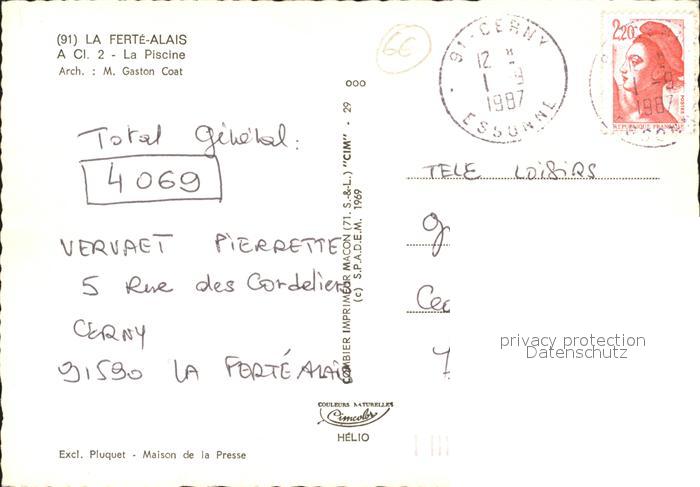 (91) LA FERTÉ-ALAIS
A Cl. 2 - La Piscine
Arch. : M. Gaston Coat
6€
91-CERNY
12 H
1 -9
1987
ESSONNE
2,20
1 -9
1987
REPUBLIQUE FRANÇAISE
POSTES
Total Général :
4 069
VERVAET PIERRETTE
5 Rue des Cordeliers
CERNY
91590 LA FERTÉ ALAIS
COMBIER IMPRIMEUR MACON (71. S.-&-L.) "CIM" - 29 ooo
(c) S.P.A.D.E.M. 1969
TELE LOISIRS
privacy protection
Datenschutz
COULEURS NATURELLES
Cimcolor
HÉLIO
Excl. Pluquet - Maison de la Presse